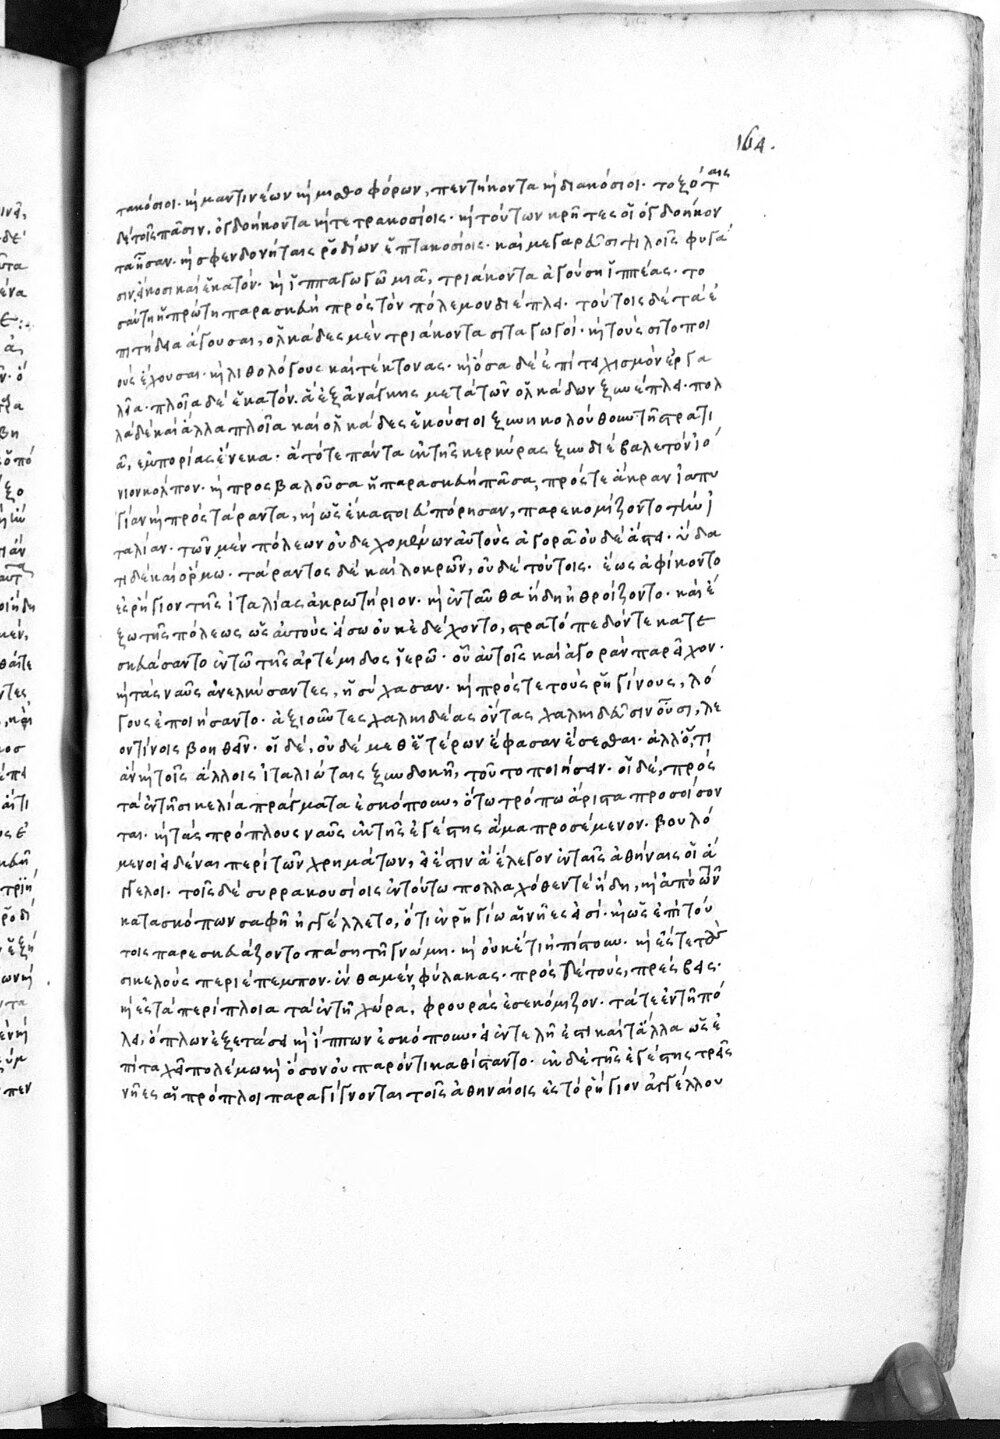 164.
τακόσιοι· καὶ μαντινέων καὶ μισθοφόρων, πεντήκοντα καὶ διακόσιοι· τοξόταις
δὲ τοῖς πᾶσιν, ὀγδοήκοντα καὶ τετρακοσίοις· καὶ τούτων κρῆτες οἱ ὀγδοήκον
τα ἦσαν· καὶ σφενδονήταις ῥοδίων ἑπτακοσίοις· καὶ μεγαρεῦσι ψιλοῖς φυγά
σιν εἴκοσι καὶ ἑκατόν· καὶ ἱππαγωγῶ μιᾶ, τριάκοντα ἀγούση ἱππέας· το
σαύτη ἡ πρώτη παρασκευὴ πρὸς τὸν πόλεμον διέπλει· τούτοις δὲ τὰ ἐ
πιτήδεια ἄγουσαι, ὁλκάδες μὲν τριάκοντα σιταγωγοί· καὶ τοὺς σιτοποι
οὺς ἔχουσαι· καὶ λιθολόγους καὶ τέκτονας· καὶ ὅσα δὲ ἐπὶ τειχισμὸν ἐργα
λεῖα· πλοῖα δὲ ἑκατόν. ἃ ἐξ ἀνάγκης μετὰ τῶν ὁλκάδων ξυνέπλει· πολ
λὰ δὲ καὶ ἄλλα πλοῖα καὶ ὁλκάδες ἑκούσιοι ξυνηκολούθουν τῆ στρατι
ᾶ, ἐμπορίας ἕνεκα· ἃ τότε πάντα ἐκ τῆς κερκύρας ξυνδιέβαλε τὸν ἰό
νιον κόλπον· καὶ προσβαλοῦσα ἡ παρασκευὴ πᾶσα, πρός τε ἄκραν ἰαπυ
γίαν καὶ πρὸς τάραντα, καὶ ὡς ἕκαστοι εὐπόρησαν, παρεκομίζοντο τὴν ἰ
ταλίαν· τῶν μὲν πόλεων οὐ δεχομένων αὐτοὺς ἀγορᾶ οὐδὲ ἄστει· ὕδα
τι δὲ καὶ ὅρμω· τάραντος δὲ καὶ λοκρῶν, οὐδὲ τούτοις· ἕως ἀφίκοντο
ἐς ῥήγιον τῆς ἰταλίας ἀκρωτήριον· καὶ ἐνταῦθα ἤδη ἠθροίζοντο· καὶ ἔ
ξω τῆς πόλεως ὡς αὐτοὺς εἴσω οὐκ ἐδέχοντο, στρατόπεδόν τε κατε
σκευάσαντο ἐν τῶ τῆς ἀρτέμιδος ἱερῶ· οὗ αὐτοῖς καὶ ἀγορὰν παρεῖχον·
καὶ τὰς ναῦς ἀνελκύσαντες, ἡσύχασαν· καὶ πρός τε τοὺς ῥηγίνους, λό
γους ἐποιήσαντο· ἀξιοῦντες χαλκιδέας ὄντας χαλκιδεῦσιν οὖσι, λε
οντίνοις βοηθεῖν· οἱ δέ, οὐδὲ μεθ' ἑτέρων ἔφασαν ἔσεσθαι· ἀλλ' ὅ,τι
ἂν καὶ τοῖς ἄλλοις ἰταλιώταις ξυνδοκῆ, τοῦτο ποιήσειν· οἱ δέ, πρὸς
τὰ ἐν τῆ σικελία πράγματα ἐσκόπουν, ὅτω τρόπω ἄριστα προσοίσον
ται· καὶ τὰς πρόπλους ναῦς ἐκ τῆς ἐγέστης ἅμα προσέμενον· βουλό
μενοι εἰδέναι περὶ τῶν χρημάτων, εἰ ἔστιν ἃ ἔλεγον ἐν ταῖς ἀθήναις οἱ ἄ
γγελοι· τοῖς δὲ συρρακουσίοις ἐν τούτω πολλαχόθεν τε ἤδη, καὶ ἀπὸ τῶν
κατασκόπων σαφῆ ἠγγέλλετο, ὅτι ἐν ῥηγίω αἱ νῆες εἰσί· καὶ ὡς ἐπὶ τού
τοις παρεσκευάζοντο πάση τῆ γνώμη· καὶ οὐκέτι ἠπίστουν· καὶ ἔς τε τοὺς
σικελοὺς περιέπεμπον· ἔνθα μὲν φύλακας· πρὸς δὲ τούς, πρέσβεις·
καὶ ἐς τὰ περιπόλια τὰ ἐν τῆ χώρα, φρουρὰς ἐσεκόμιζον· τά τε ἐν τῆ πό
λει, ὅπλων ἐξετάσει καὶ ἵππων ἐσκόπουν· εἰ ἐντελῆ ἐστι καὶ τἆλλα ὡς ἐ
πὶ ταχεῖ πολέμω καὶ ὅσον οὐ παρόντι καθίσταντο· ἐκ δὲ τῆς ἐγέστης τρεῖς
νῆες αἱ πρόπλοι παραγίγνονται τοῖς ἀθηναίοις ἐς τὸ ῥήγιον ἀγγέλλου